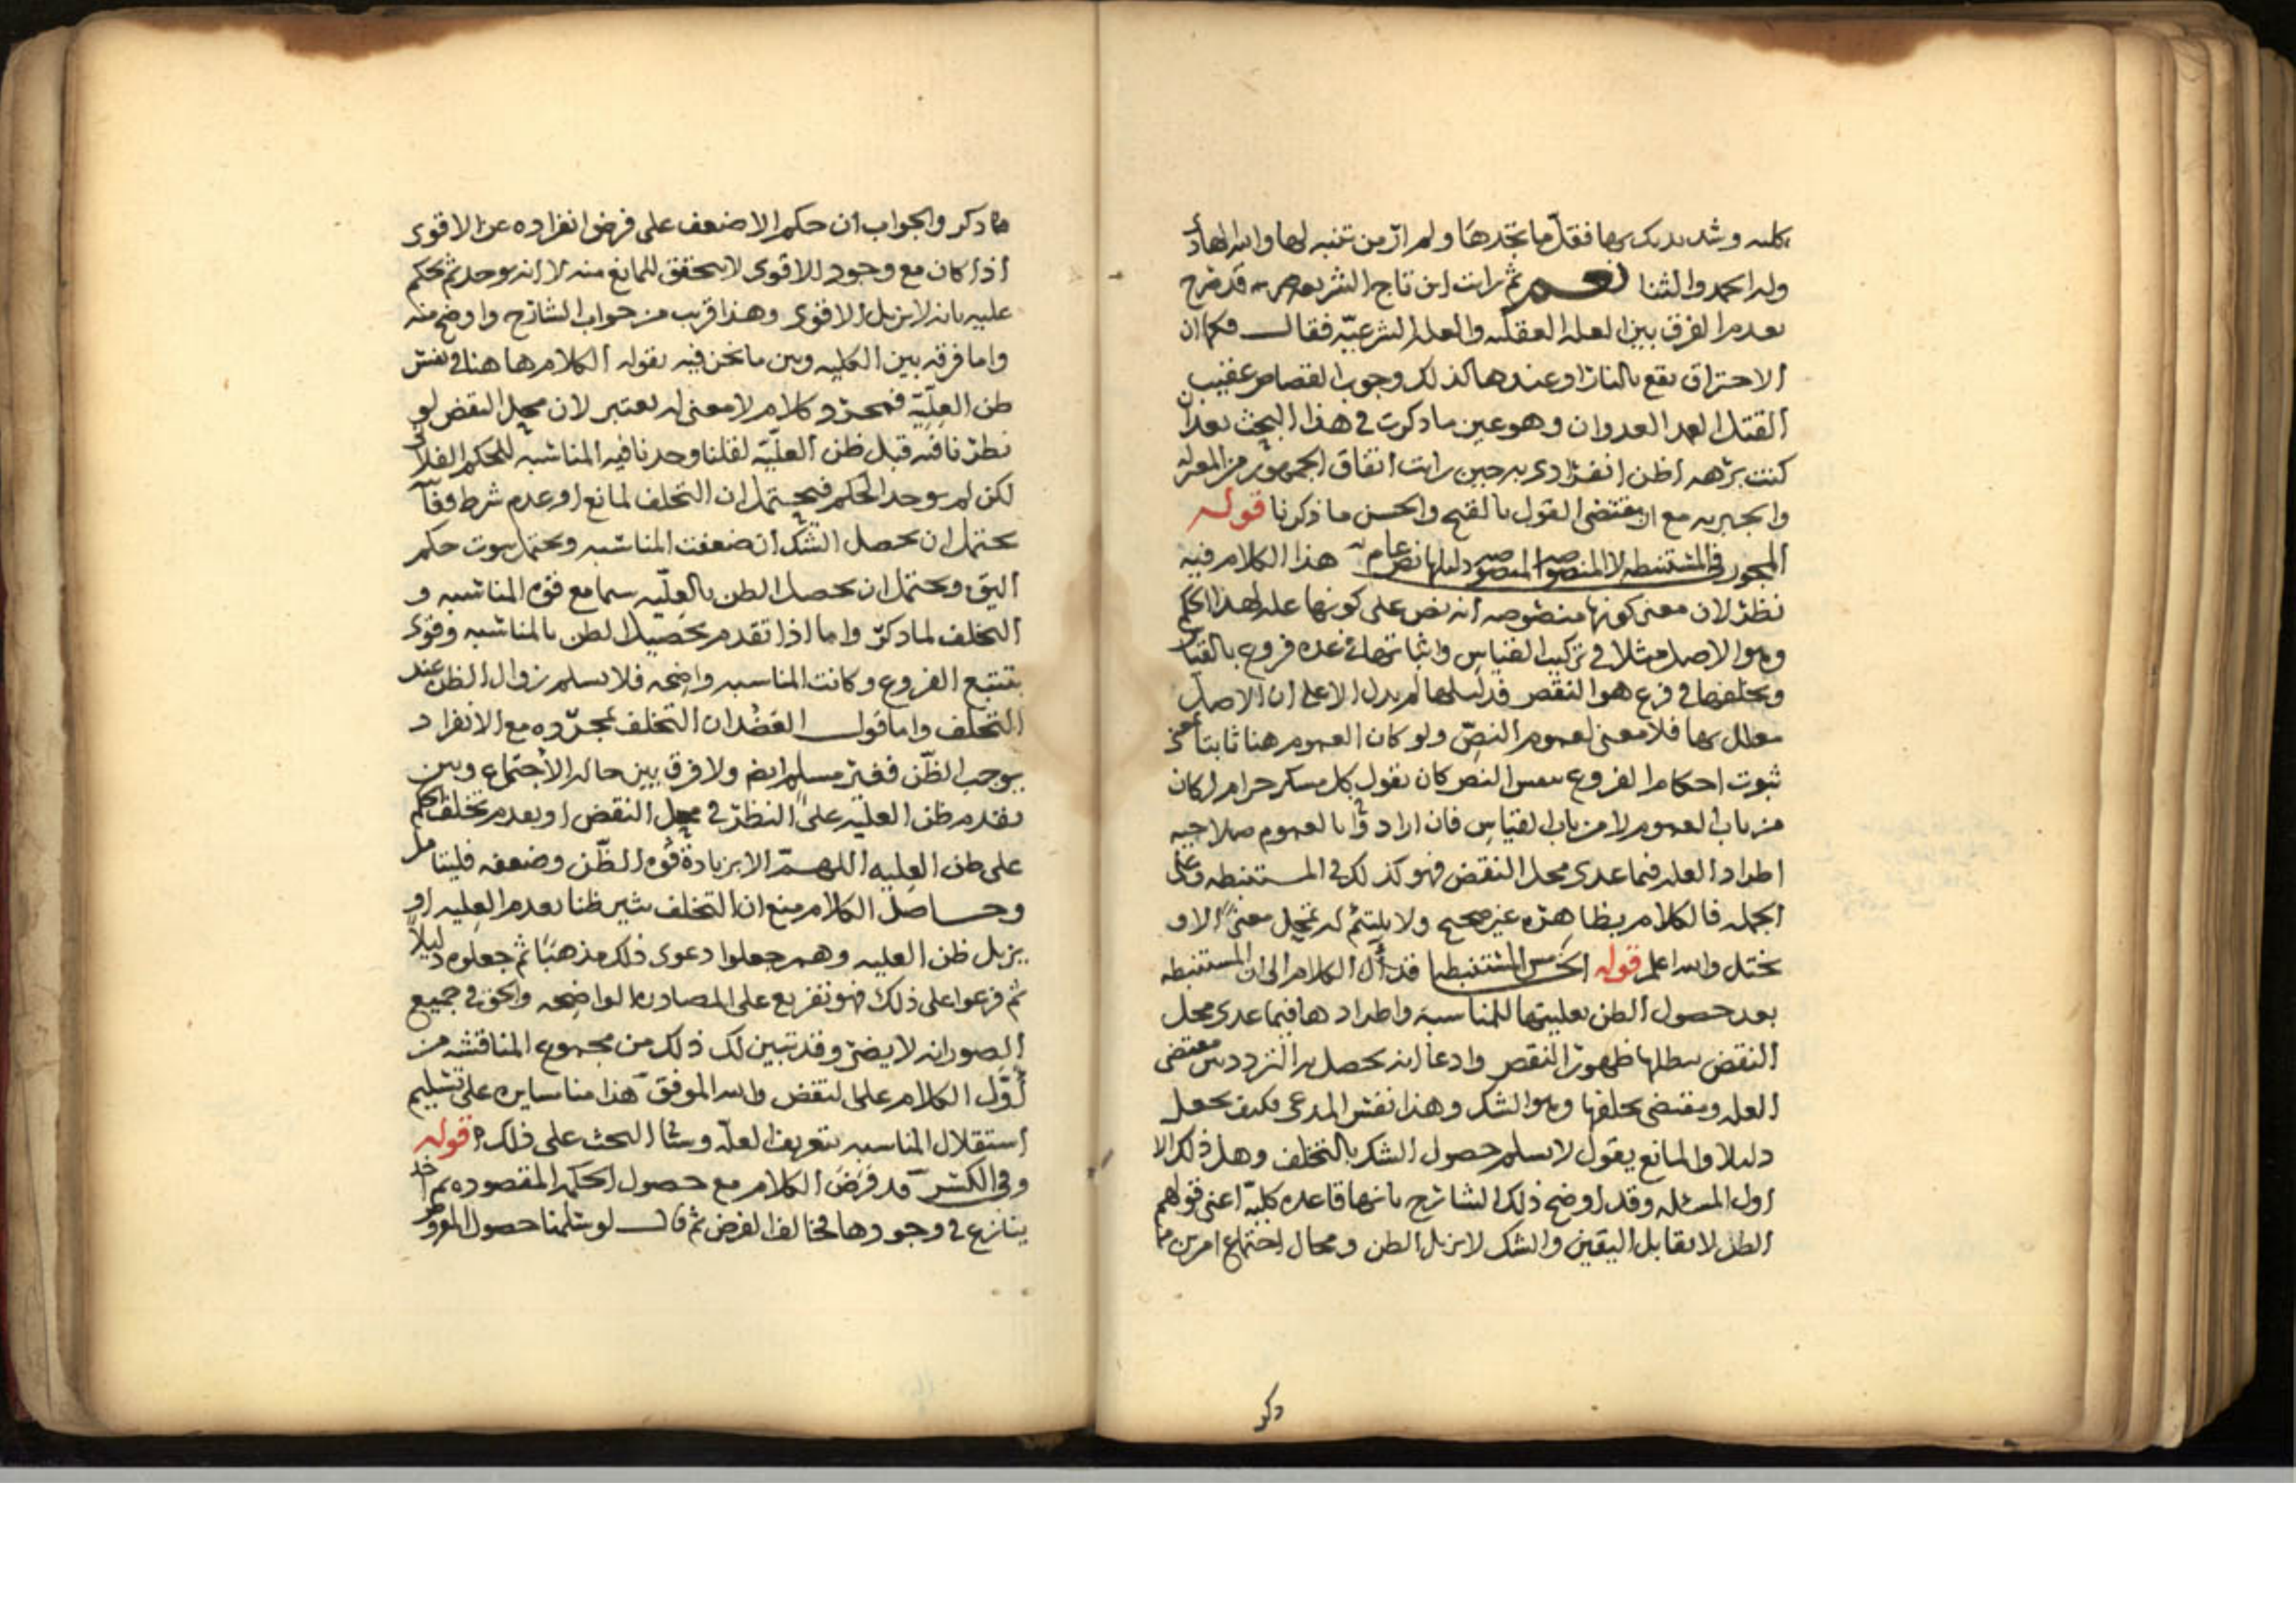 كليه وشد يديك بها فقل ما تجدها ولم ار من تنبه لها والله الهادي
وله الحمد والثنا نعم ثم رايت ابن تاج الشريعه قد صرح
بعدم الفرق بين العله العقليه والعله الشرعيه فقال فكما ان
الاحتراق يقع بالنار او عندها كذلك وجوب القصاص عقيب
القتل العمد العدوان وهو عين ما ذكرت في هذا البحث بعد ان
كنت برهه اظن انفرادي به حين رايت اتفاق الجمهور من المعتزله
والجبريه مع ان مقتضى القول بالقبح والحسن ما ذكرنا قوله
المجوز في المستنبطه لا المنصوصه المنصوصه دليلها نص عام هذا الكلام فيه
نظر لان معنى كونها منصوصه انه نص على كونها عله لهذا الحكم
وهو الاصل مثلا في تركيب القياس واثباتها في عده فروع بالقياس
وتخلفها في فرع هو النقص فدليلها لم يدل الا على ان الاصل
معلل بها فلا معنى لعموم النص ولو كان العموم هنا ثابتا
ثبوت احكام الفروع بنفس النص كان يقول كل مسكر حرام لكان
من باب العموم لا من باب القياس فان ارادوا بالعموم صلاحيه
اطراد العله فيما عدى محل النقض فهو كذلك في المستنبطه وعلى
الجمله فالكلام بظاهره غير صحيح ولا يلتئم له تمحل معنى الا و
يختل والله اعلم قوله الخامس المستنبطه قد آل الكلام الى ان المستنبطه
بعد حصول الظن بعليتها للمناسبه واطرادها فيما عدى محل
النقض يبطلها ظهور النقص وادعا انه يحصل به التردد بين مقتضى
العله ومقتضى تخلفها وهو الشك وهذا نفس المدعى فكيف يجعل
دليلا والمانع يقول لا نسلم حصول الشك بالتخلف وهل ذلك الا
اول المسئله وقد اوضح ذلك الشارح بانها قاعده كليه اعني قولهم
الظن لا يقابل اليقين والشك لا يزيل الظن ومحال اجتماع امرين
ذكر
ما ذكر والجواب ان حكم الاضعف على فرض انفراده عن الاقوى
اذا كان مع وجود الاقوى لا يتحقق للمانع منه لا انه يوجد ثم يحكم
عليه بانه لا يزيل الاقوى وهذا قريب من جواب الشارح واوضح منه
واما فرقه بين الكليه وبين ما نحن فيه بقوله الكلام هاهنا في نفس
ظن العليه فمجرد كلام لا معنى له يعتبر لان محل النقض لو
نظرنا فيه قبل ظن العليه لقلنا وجدنا فيه المناسبه للحكم الفلاني
لكن لم يوجد الحكم فيحتمل ان التخلف لمانع او عدم شرط وفاقا
يحتمل ان يحصل الشك ان ضعفت المناسبه ويحتمل ثبوت حكم
ويحتمل ان يحصل الظن بالعليه سيما مع قوه المناسبه و
التخلف لما ذكر واما اذا تقدم تحصيل الظن بالمناسبه وقوى
بتتبع الفروع وكانت المناسبه واضحه فلا نسلم زوال الظن عند
التخلف واما قول العضد ان التخلف بمجرده مع الانفراد
يوجب الظن فغير مسلم ايضا ولا فرق بين حاله الاجتماع وبين
تقدم ظن العليه على النظر في محل النقض او بعدم تخلف الحكم
على ظن العليه اللهم الا بزيادة قوه الظن وضعفه فليتامل
وحاصل الكلام منع ان التخلف يثير ظنا بعدم العليه او
يزيل ظن العليه وهم جعلوا دعوى ذلك مذهبا ثم جعلوه دليلا
ثم فرعوا على ذلك فهو تفريع على المصادره الواضحه والحق في جميع
الصور انه لا يضر وقد تبين لك ذلك من مجموع المناقشه من
اول الكلام على النقض والله الموفق هذا منا مسايره على تسليم
استقلال المناسبه بتعريف العله وسياتي البحث على ذلك قوله
وفي الكسر قد فرض الكلام مع حصول الحكمه المقصوده ثم اخذ
ينازع في وجودها فخالف الفرض ثم قال لو سلمنا حصول المفروض